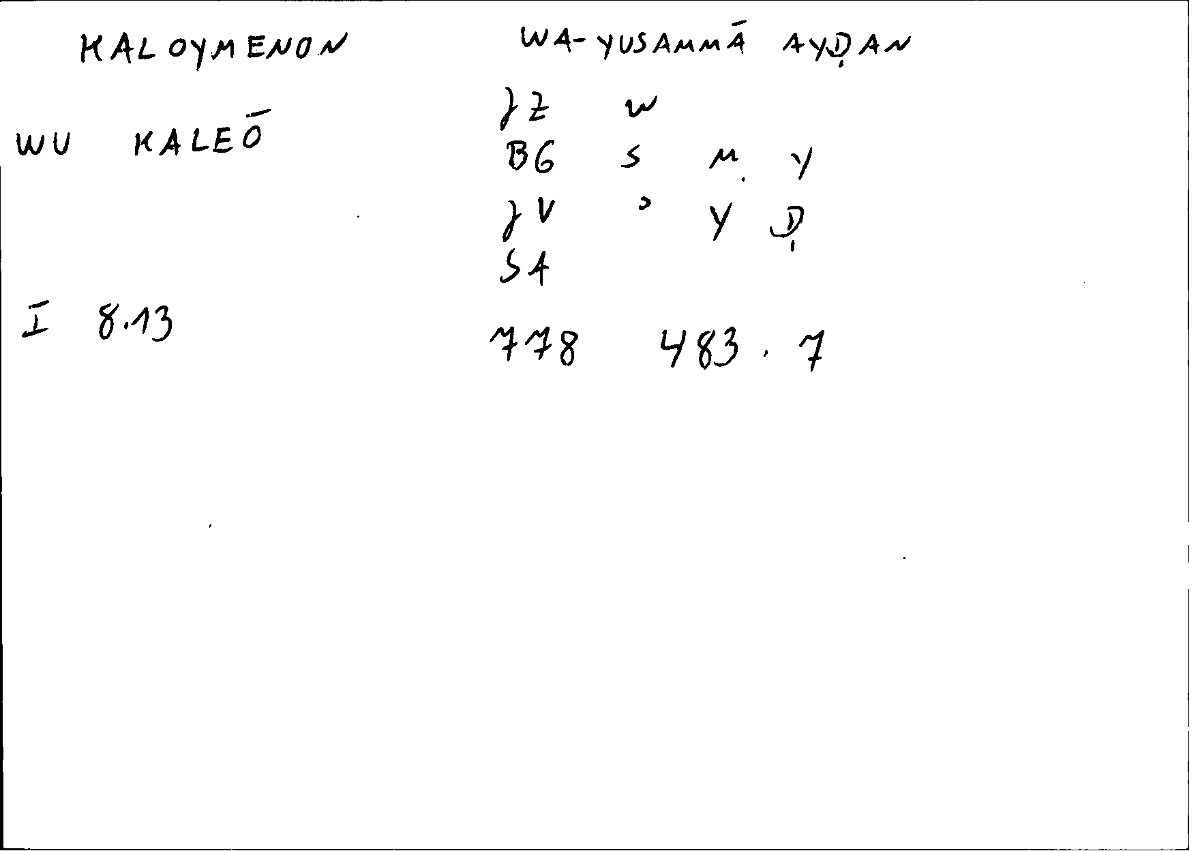 KALOYMENON WA-YUSAMMĀ AYḌAN
JZ W
WU KALEŌ
BG S M Y
JV ʾ Y Ḍ
SA
I 8.13
778 483.7